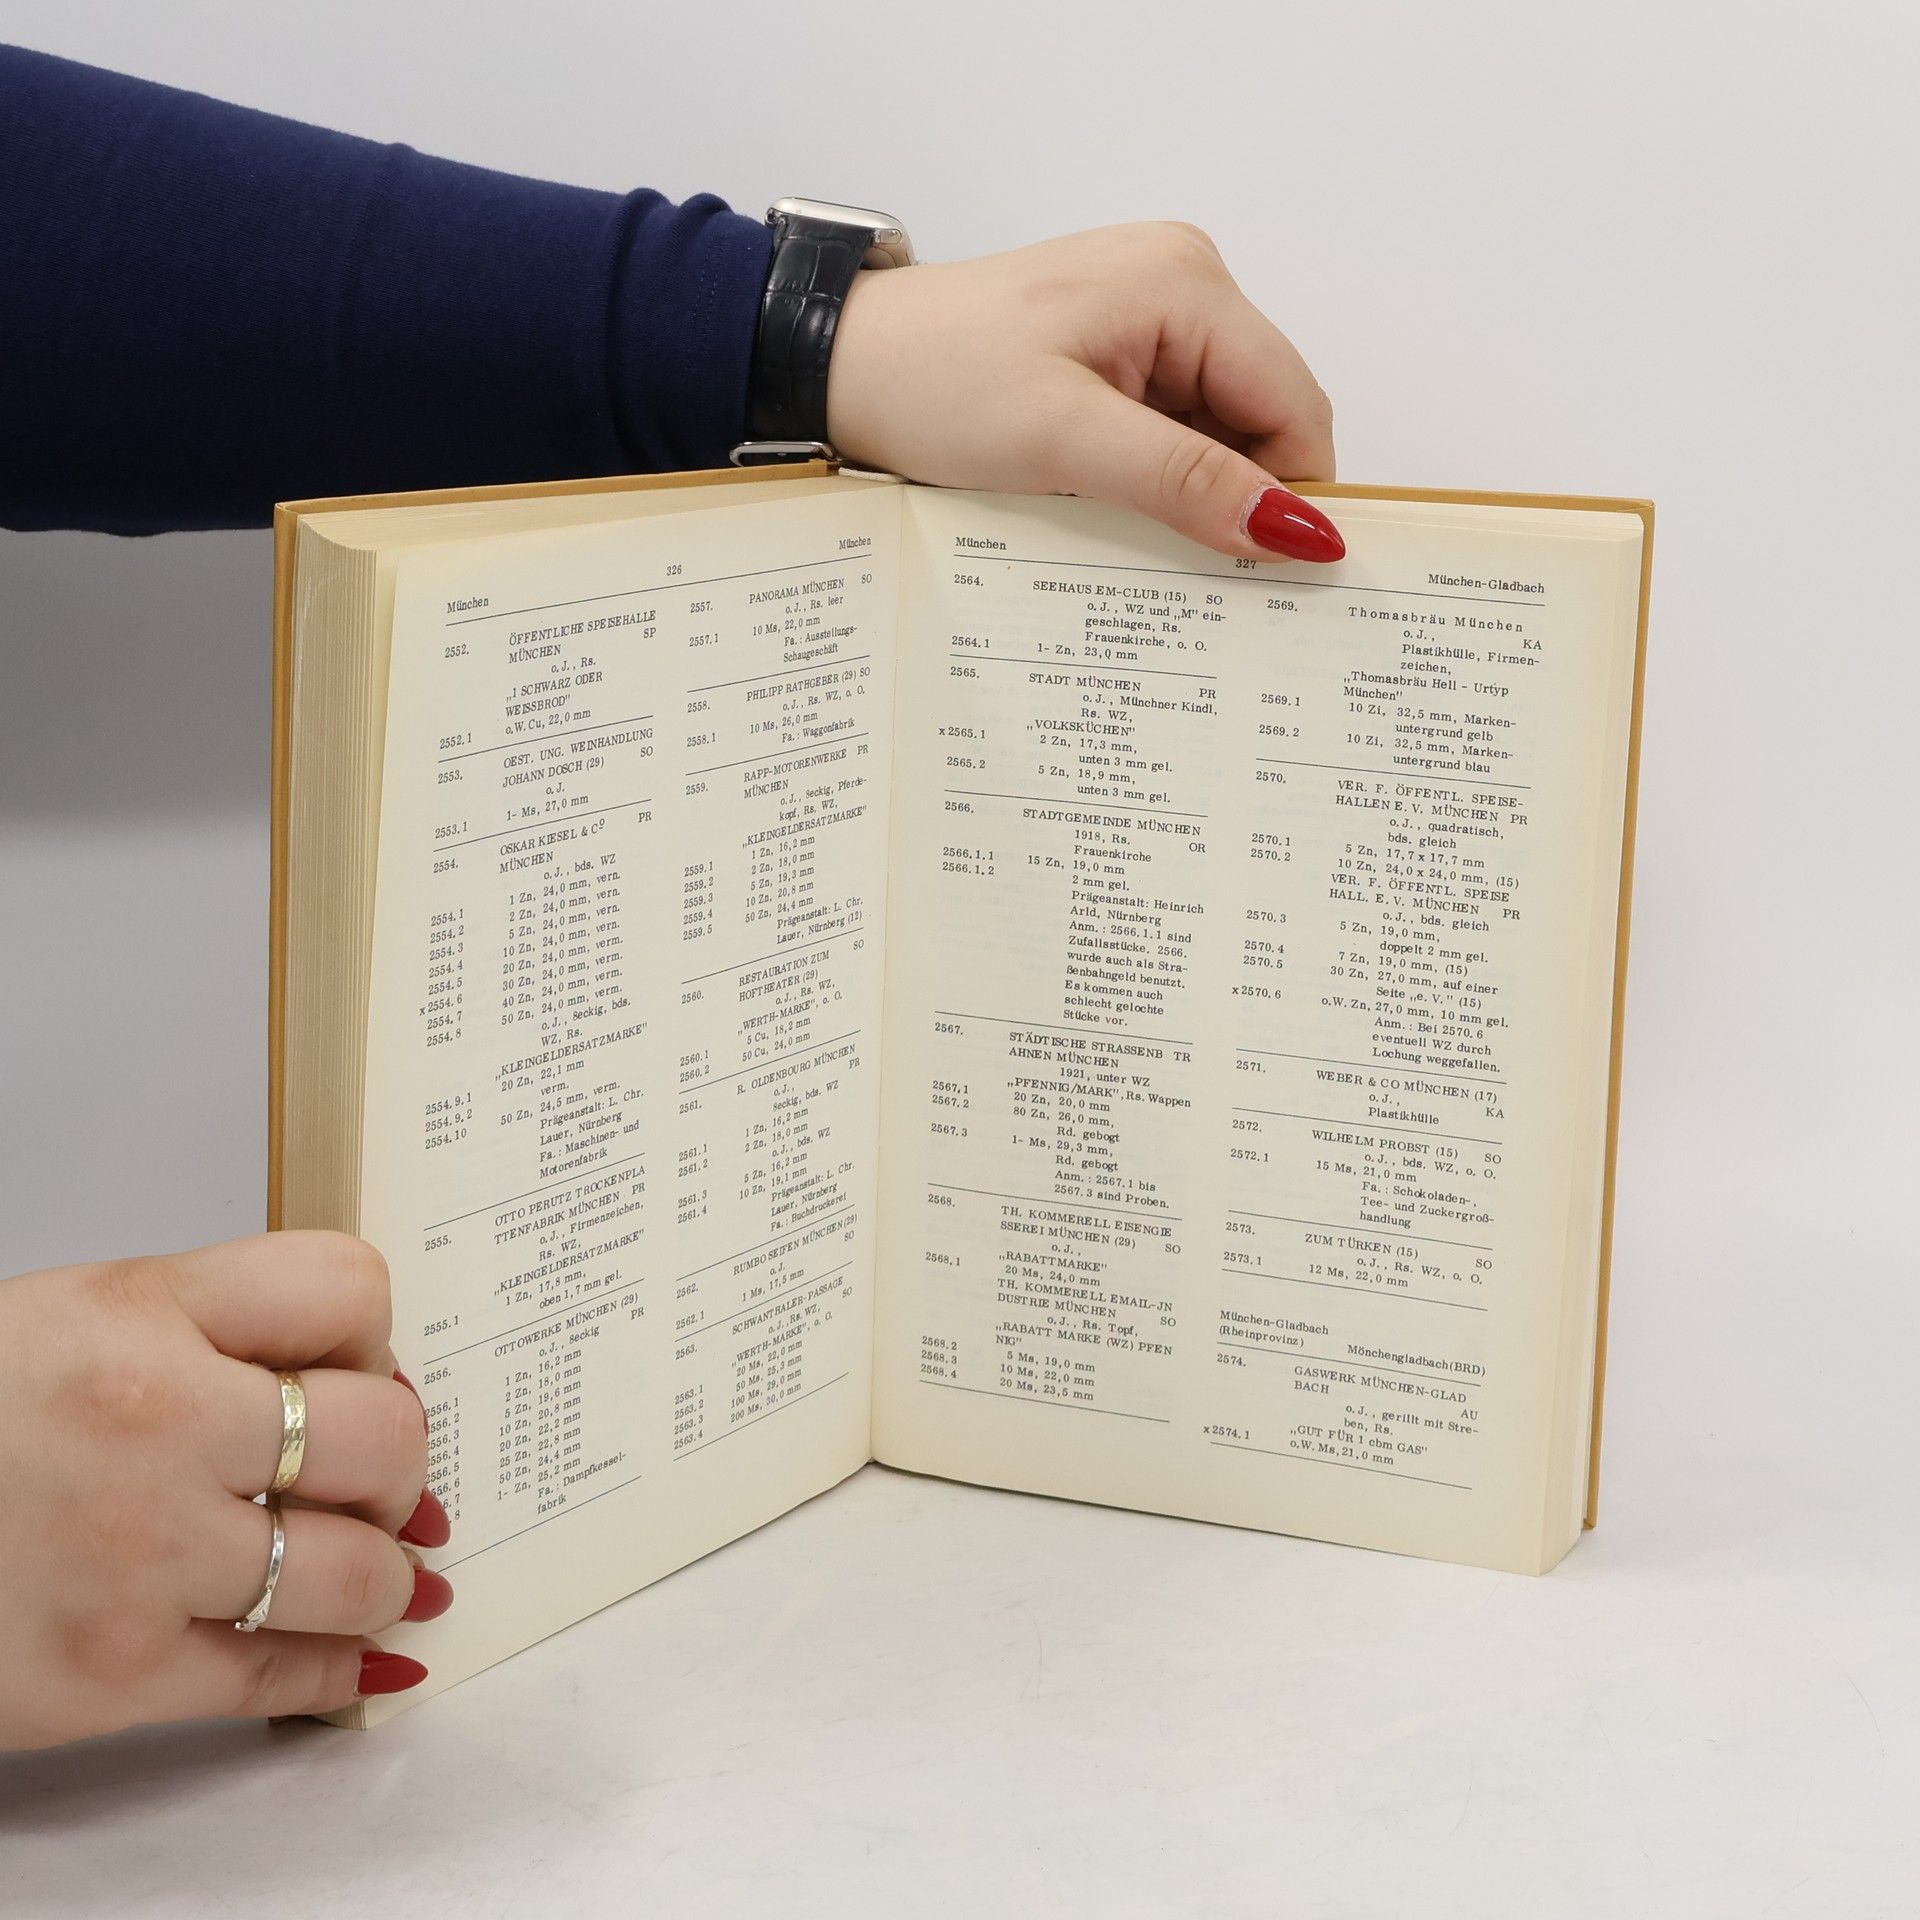 München
326
München
2552.
ÖFFENTLICHE SPEISEHALLE
SP
MÜNCHEN
o. J., Rs.
„1 SCHWARZ ODER
WEISSBROD"
2552.1
o.W. Cu, 22,0 mm
2553.
OEST. UNG. WEINHANDLUNG
JOHANN DOSCH (29) SO
o. J.
2553.1
1- Ms, 27,0 mm
2554.
OSKAR KIESEL & Cº PR
MÜNCHEN
o. J., bds. WZ
2554.1 1 Zn, 24,0 mm, vern.
2554.2 2 Zn, 24,0 mm, vern.
2554.3 5 Zn, 24,0 mm, vern.
2554.4 10 Zn, 24,0 mm, vern.
2554.5 20 Zn, 24,0 mm, verm.
x2554.6 30 Zn, 24,0 mm, verm.
2554.7 40 Zn, 24,0 mm, verm.
2554.8 50 Zn, 24,0 mm, verm.
o. J., 8eckig, bds.
WZ, Rs.
„KLEINGELDERSATZMARKE"
2554.9.1 20 Zn, 22,1 mm
2554.9.2 verm.
2554.10 50 Zn, 24,5 mm, verm.
Prägeanstalt: L. Chr.
Lauer, Nürnberg
Fa.: Maschinen- und
Motorenfabrik
2555.
OTTO PERUTZ TROCKENPLA
TTENFABRIK MÜNCHEN PR
o. J., Firmenzeichen,
Rs. WZ,
„KLEINGELDERSATZMARKE"
2555.1 1 Zn, 17,8 mm,
oben 1,7 mm gel.
2556.
OTTOWERKE MÜNCHEN (29)
o. J., 8eckig PR
2556.1 1 Zn, 16,2 mm
2556.2 2 Zn, 18,0 mm
2556.3 5 Zn, 19,6 mm
2556.4 10 Zn, 20,8 mm
2556.5 20 Zn, 22,2 mm
556.6 25 Zn, 22,8 mm
6.7 50 Zn, 24,4 mm
.8 1- Zn, 25,2 mm
Fa.: Dampfkessel-
fabrik
2557.
PANORAMA MÜNCHEN SO
o. J., Rs. leer
2557.1 10 Ms, 22,0 mm
Fa.: Ausstellungs-
Schaugeschäft
2558.
PHILIPP RATHGEBER (29) SO
o. J., Rs. WZ, o. O.
2558.1 10 Ms, 26,0 mm
Fa.: Waggonfabrik
2559.
RAPP-MOTORENWERKE PR
MÜNCHEN
o. J., 8eckig, Pferde-
kopf, Rs. WZ,
„KLEINGELDERSATZMARKE"
2559.1 1 Zn, 16,2 mm
2559.2 2 Zn, 18,0 mm
2559.3 5 Zn, 19,3 mm
2559.4 10 Zn, 20,8 mm
2559.5 50 Zn, 24,4 mm
Prägeanstalt: L. Chr.
Lauer, Nürnberg (12)
2560.
RESTAURATION ZUM SO
HOFTHEATER (29)
o. J., Rs. WZ,
„WERTH-MARKE", o. O.
2560.1 5 Cu, 18,2 mm
2560.2 50 Cu, 24,0 mm
2561.
R. OLDENBOURG MÜNCHEN
o. J., PR
8eckig, bds. WZ
2561.1 1 Zn, 16,2 mm
2561.2 2 Zn, 18,0 mm
o. J., bds. WZ
2561.3 5 Zn, 16,2 mm
2561.4 10 Zn, 19,1 mm
Prägeanstalt: L. Chr.
Lauer, Nürnberg
Fa.: Buchdruckerei
2562.
RUMBO SEIFEN MÜNCHEN (29)
o. J. SO
2562.1 1 Ms, 17,5 mm
2563.
SCHWANTHALER-PASSAGE
o. J., Rs. WZ, SO
„WERTH-MARKE", o. O.
2563.1 20 Ms, 22,0 mm
2563.2 50 Ms, 25,3 mm
2563.3 100 Ms, 29,0 mm
2563.4 200 Ms, 30,0 mm
München
327
München-Gladbach
2564.
SEEHAUS EM-CLUB (15) SO
o. J., WZ und „M" ein-
geschlagen, Rs.
Frauenkirche, o. O.
2564.1 1- Zn, 23,0 mm
2565.
STADT MÜNCHEN PR
o. J., Münchner Kindl,
Rs. WZ,
„VOLKSKÜCHEN"
x2565.1 2 Zn, 17,3 mm,
unten 3 mm gel.
2565.2 5 Zn, 18,9 mm,
unten 3 mm gel.
2566.
STADTGEMEINDE MÜNCHEN
1918, Rs. OR
Frauenkirche
2566.1.1 15 Zn, 19,0 mm
2566.1.2 2 mm gel.
Prägeanstalt: Heinrich
Arld, Nürnberg
Anm.: 2566.1.1 sind
Zufallsstücke. 2566.
wurde auch als Stra-
ßenbahngeld benutzt.
Es kommen auch
schlecht gelochte
Stücke vor.
2567.
STÄDTISCHE STRASSENB TR
AHNEN MÜNCHEN
1921, unter WZ
„PFENNIG/MARK", Rs. Wappen
2567.1 20 Zn, 20,0 mm
2567.2 80 Zn, 26,0 mm,
Rd. gebogt
2567.3 1- Ms, 29,3 mm,
Rd. gebogt
Anm.: 2567.1 bis
2567.3 sind Proben.
2568.
TH. KOMMERELL EISENGIE
SSEREI MÜNCHEN (29) SO
o. J.,
„RABATTMARKE"
2568.1 20 Ms, 24,0 mm
TH. KOMMERELL EMAIL-JN
DUSTRIE MÜNCHEN
o. J., Rs. Topf, SO
„RABATT MARKE (WZ) PFEN
NIG"
2568.2 5 Ms, 19,0 mm
2568.3 10 Ms, 22,0 mm
2568.4 20 Ms, 23,5 mm
2569.
Thomasbräu München
o. J., KA
Plastikhülle, Firmen-
zeichen,
„Thomasbräu Hell - Urtyp
München"
2569.1 10 Zi, 32,5 mm, Marken-
untergrund gelb
2569.2 10 Zi, 32,5 mm, Marken-
untergrund blau
2570.
VER. F. ÖFFENTL. SPEISE-
HALLEN E. V. MÜNCHEN PR
o. J., quadratisch,
bds. gleich
2570.1 5 Zn, 17,7 x 17,7 mm
2570.2 10 Zn, 24,0 x 24,0 mm, (15)
VER. F. ÖFFENTL. SPEISE
HALL. E. V. MÜNCHEN PR
o. J., bds. gleich
2570.3 5 Zn, 19,0 mm,
doppelt 2 mm gel.
2570.4 7 Zn, 19,0 mm, (15)
2570.5 30 Zn, 27,0 mm, auf einer
Seite „e. V." (15)
x2570.6 o.W. Zn, 27,0 mm, 10 mm gel.
Anm.: Bei 2570.6
eventuell WZ durch
Lochung weggefallen.
2571.
WEBER & CO MÜNCHEN (17)
o. J., KA
Plastikhülle
2572.
WILHELM PROBST (15) SO
o. J., bds. WZ, o. O.
2572.1 15 Ms, 21,0 mm
Fa.: Schokoladen-,
Tee- und Zuckergroß-
handlung
2573.
ZUM TÜRKEN (15) SO
o. J., Rs. WZ, o. O.
2573.1 12 Ms, 22,0 mm
München-Gladbach
(Rheinprovinz) Mönchengladbach(BRD)
2574.
GASWERK MÜNCHEN-GLAD
BACH AU
o. J., gerillt mit Stre-
ben, Rs.
„GUT FÜR 1 cbm GAS"
x2574.1 o.W. Ms, 21,0 mm